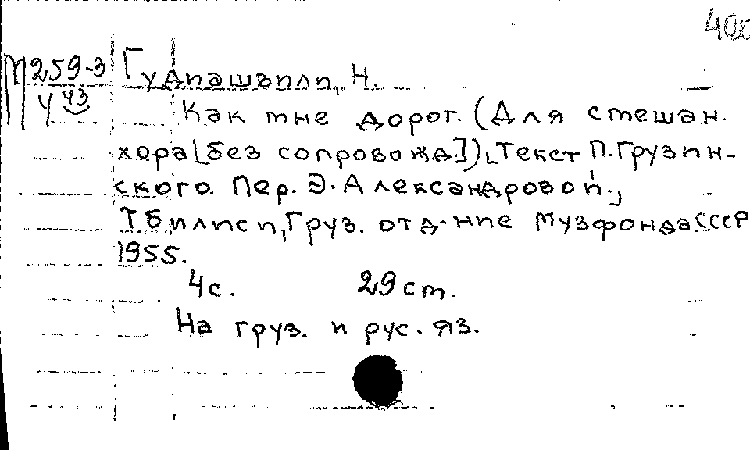 400
М259-3 Гудиашвили, Н.
ЧЗ
Как мне дорог. (Для смешан.
хора [без сопровожд.]). Текст П. Грузин-
ского. Пер. Э. Александровой.,
Тбилиси, Груз. отд-ние Музфонда СССР
1955.
4с. 29 см.
На груз. и рус. яз.